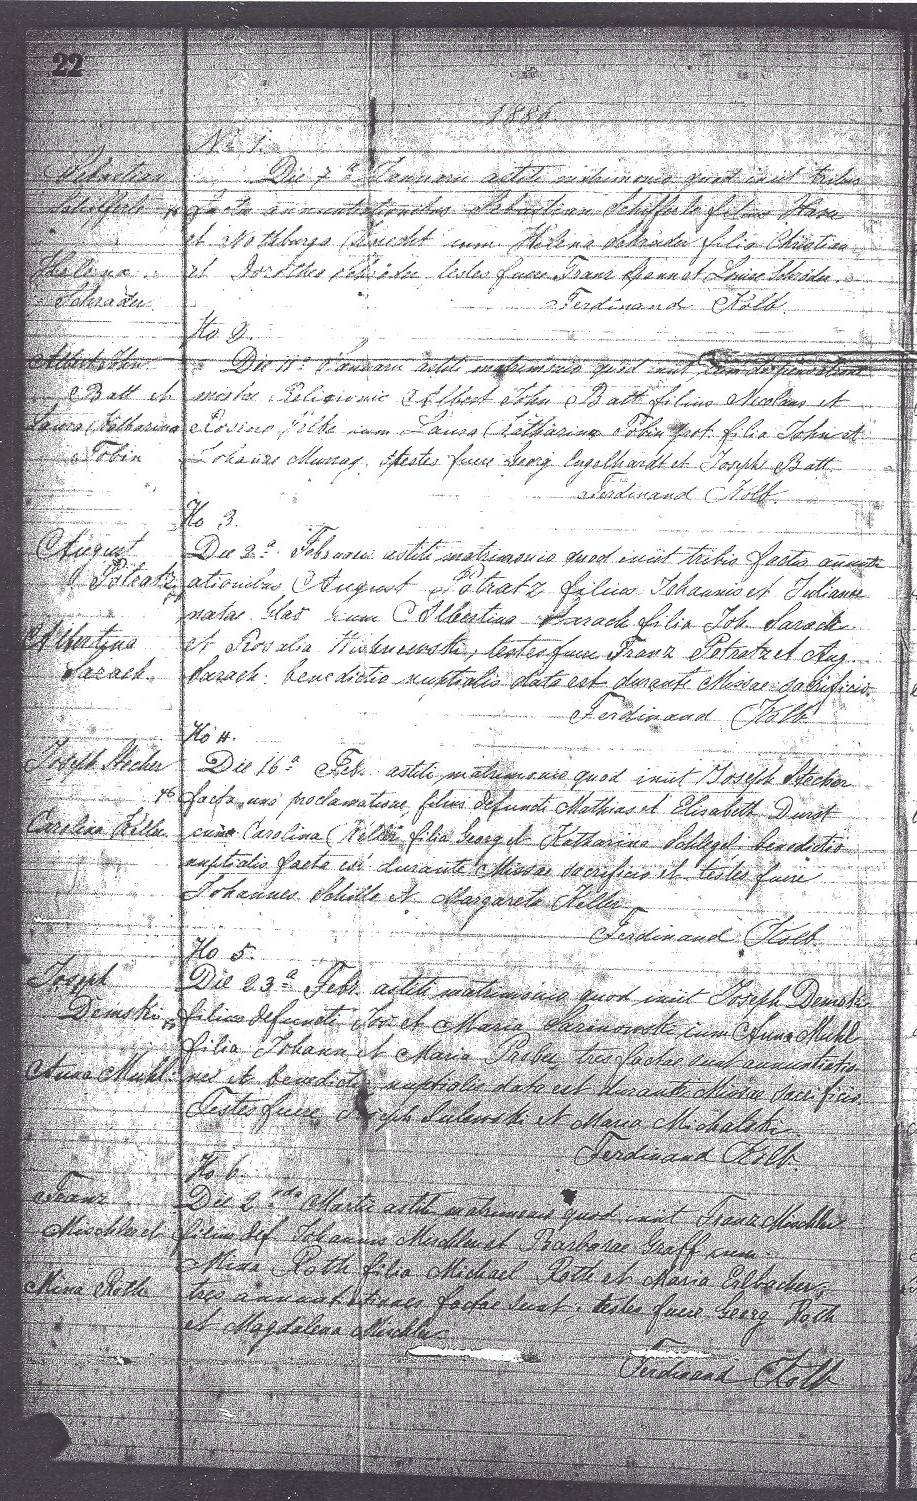 22
1886
No 1.
Sebastian
Schifferle et
Helena
Schrader
Die 7a Januarii astiti matrimonio quod iniit tribus
factis annuntiationibus Sebastian Schifferle filius
et Nothburga cum Helena Schrader filia Christian
et Dorothea Schrader testes fuere Franz et Louise Schrader.
Ferdinand Kolb.
No 2.
Albert John
Batt et
Laura Katharina
Tobin
Die 11a Januarii astiti matrimonio quod iniit cum dispensatione
mixtae Religionis Albert John Batt filius Nicolaus et
Rosina cum Laura Katharina Tobin prot. filia John et
Johanne Murray. testes fuere Georg Engelhardt et Joseph Batt
Ferdinand Kolb
No 3.
August
Potratz
et
Albertina
Sarach.
Die 2a Februarii astiti matrimonio quod iniit tribus factis annunti
ationibus August Potratz filius Johannis et Julianne
natae Glas cum Albertina Sarach filia Joh. Sarach
et Rosalia Wishnewski, testes fuere Franz Potratz et Aug.
Sarach. benedictio nuptialis data est durante Missae sacrificio.
Ferdinand Kolb
No 4.
Joseph Stecher
et
Carolina Keller
Die 16a Febr. astiti matrimonio quod iniit Joseph Stecher
facta una proclamatione, filius defuncti Mathias et Elisabeth Durst
cum Carolina Keller filia Georg et Katharina Schlegel benedictio
nuptialis facta est durante Missae sacrificio et testes fuere
Johannes Schille et Margareta Keller
Ferdinand Kolb.
No 5.
Joseph
Demski
et
Anna Muhl.
Die 23a Febr. astiti matrimonio quod iniit Joseph Demski
filius defuncti Jos et Maria Sarinowski cum Anna Muhl
filia Johann et Maria tres factae sunt annuntiatio
nes et benedictio nuptialis data est durante Missae sacrificio.
Testes fuere Joseph Sulewski et Maria Michalski
Ferdinand Kolb.
No 6.
Franz
Mischler et
Mina Roth
Die 2nda Martii astiti matrimonio quod iniit Franz Mischler
filius def. Johannis Mischler et Barbarae Graff cum
Mina Roth filia Michael Roth et Maria
tres annuntiationes factae sunt. testes fuere Georg Roth
et Magdalena Mischler
Ferdinand Kolb